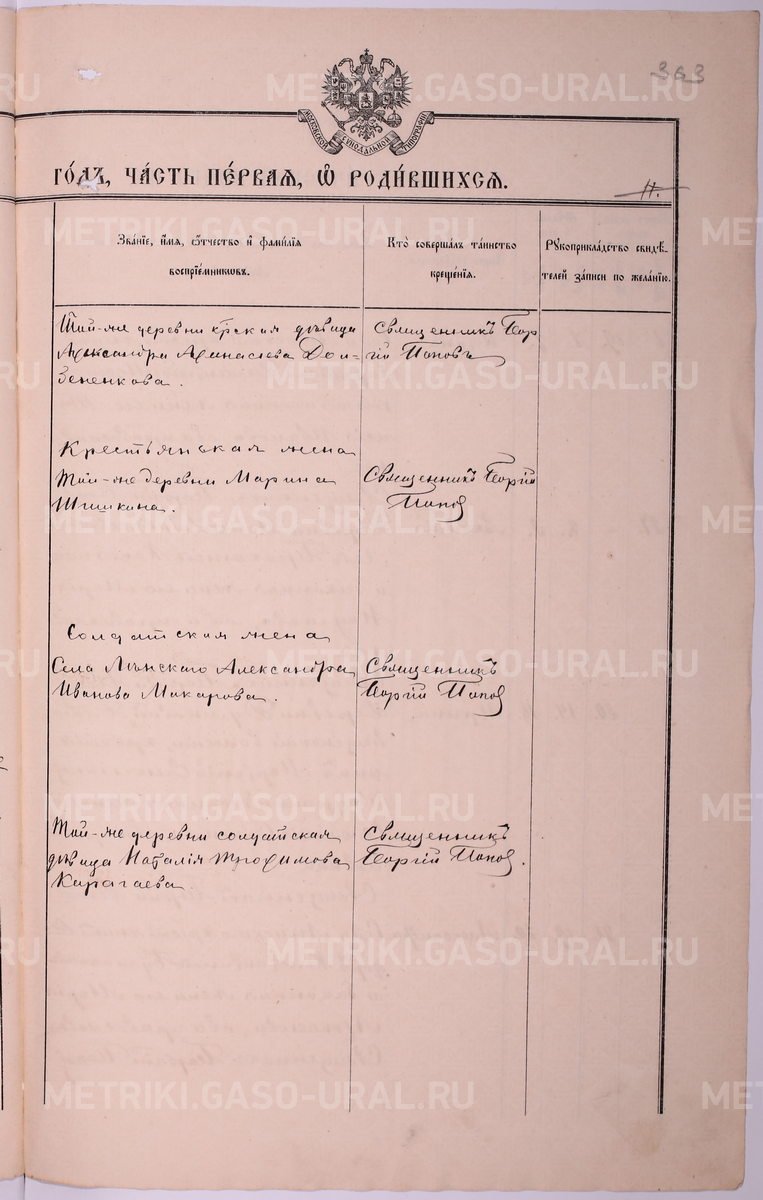 363
МОСКОВСКОЙ СѴНОДАЛЬНОЙ ТИПОГРАФІИ
ГО́ДЪ, ЧА́СТЬ ПЕ́РВАЯ, Ѽ РОДИ́ВШИХСЯ.
11.
Зва́ніе, и҆́мя, ѻ҆́тчество и҆ фами́лія
воспріе́мниковъ.
Кто̀ соверша́лъ та́инство
креще́нія.
Рꙋкоприкла́дство свидѣ́-
телей за́писи по жела́нію.
Той-же деревни кр-ская дѣвица
Александра Аѳанасіева Дол-
Священникъ Геор
гій Поповъ
Крестьянская жена
Той-же деревни Марина
Шишкина.
Священникъ Георгій
Попов
Солдатская жена
Села Александра
Иванова Макарова.
Священникъ
Георгій Попов
Той-же деревни солдатская
дѣвица Наталія Трофимова
Карагаева
Священникъ
Георгій Попов.
METRIKI.GASO-URAL.RU